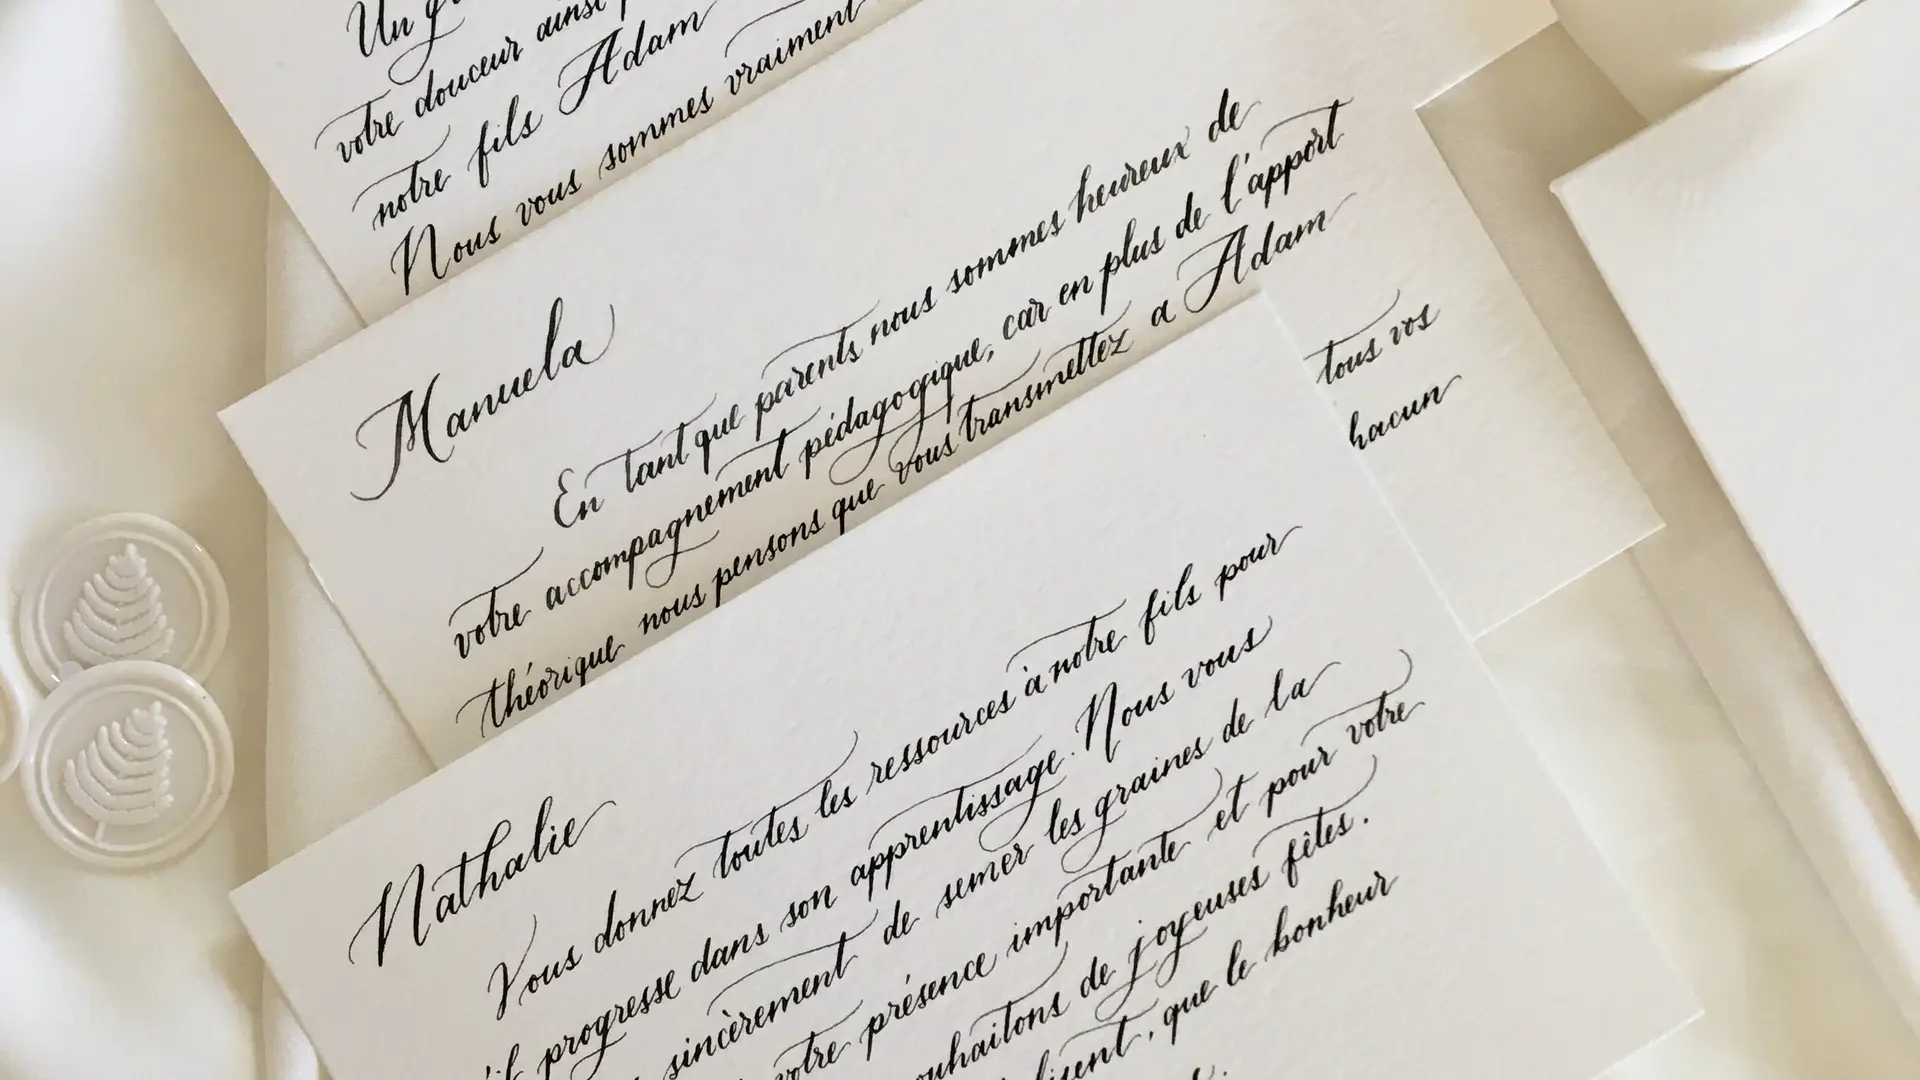 Un
votre douceur ainsi
notre fils Adam
Nous vous sommes vraiment
Manuela
En tant que parents nous sommes heureux de
votre accompagnement pédagogique, car en plus de l'apport
théorique nous pensons que vous transmettez a Adam
tous vos
hacun
Nathalie
Vous donnez toutes les ressources à notre fils pour
progresse dans son apprentissage. Nous vous
sincèrement de semer les graines de la
votre présence importante et pour votre
ouhaitons de joyeuses fêtes.
lisent, que le bonheur